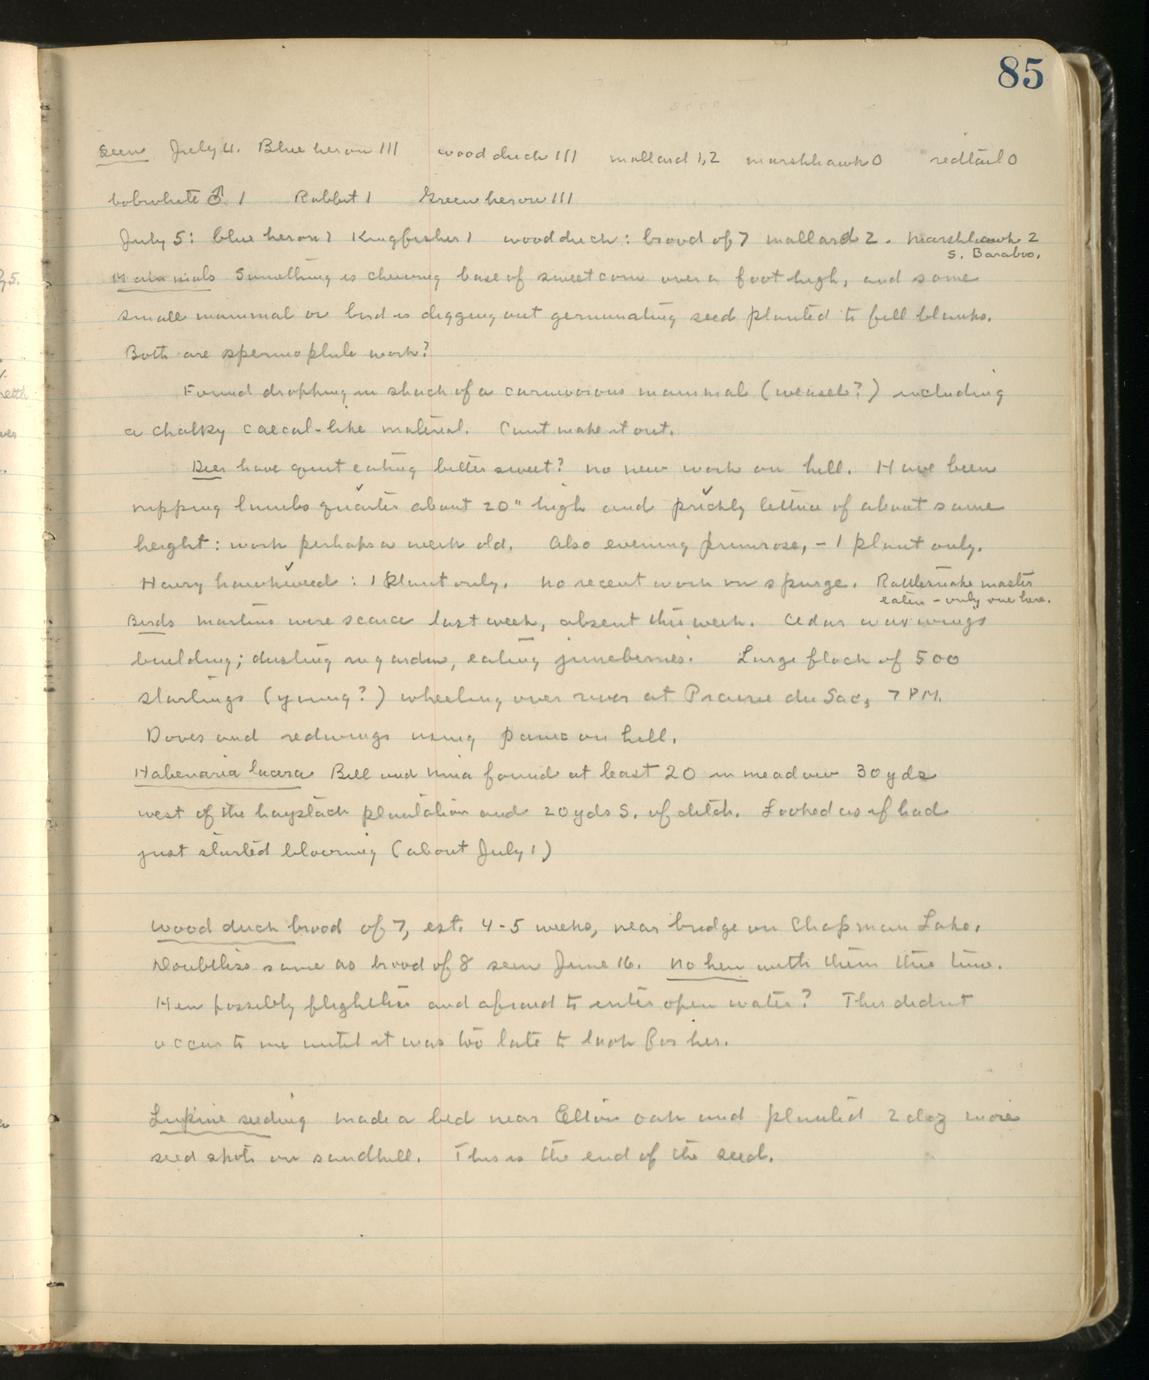 85
Seen July 4. Blue heron 111 wood duck 111 mallard 1,2 marshhawk 0 redtail 0
bobwhite ♂ 1 Rabbit 1 Green heron 111
July 5: blue heron 1 Kingfisher 1 wood duck: brood of 7 mallard 2. Marshhawk 2
S. Baraboo.
Mammals Something is chewing base of sweet corn over a foot high, and some
small mammal or bird is digging out germinating seed planted to fill blanks.
Both are spermophile work?
Found dropping in shack of a carnivorous mammal (weasel?) including
a chalky caecal-like material. Cant make it out.
Deer have quit eating bittersweet? no new work on hill. Have been
nipping lambs quarter about 20" high and prickly lettuce of about same
height: work perhaps a week old. Also evening primrose, - 1 plant only.
Hairy hawkweed: 1 plant only. No recent work on spurge. Rattlesnake master
eaten - only one here.
Birds martins were scarce last week, absent this week. Cedar waxwings
building; dusting in garden, eating juneberries. Large flock of 500
starlings (young?) wheeling over river at Prairie du Sac, 7 PM.
Doves and redwings using panic on hill.
Habenaria lacera Bill and Nina found at least 20 in meadow 30 yds
west of the haystack plantation and 20 yds S. of ditch. Looked as if had
just started blooming (about July 1)
Wood duck brood of 7, est. 4-5 weeks, near bridge on Chapman Lake.
Doubtless same as brood of 8 seen June 16. No hen with them this time.
Hen possibly flightless and afraid to enter open water? This didn't
occur to me until it was too late to look for her.
Lupine seeding made a bed near Elton oak and planted 2 doz more
seed spots on sandhill. This is the end of the seed.